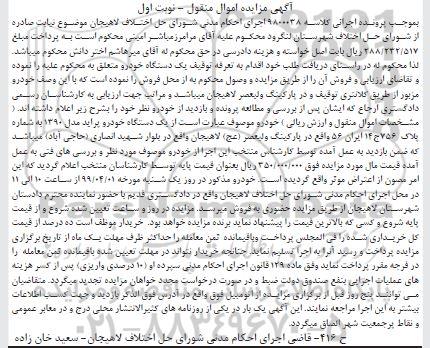 آگهی مزایده اموال منقول - نوبت اول
بموجب پرونده اجرائی کلاسه ۹۸۰۰۰۳۸ اجرای احکام مدنی شورای حل اختلاف لاهیجان موضوع نیابت صادره
از شورای حل اختلاف شهرستان لنگرود محکوم علیه آقای مرامرزمباشر امینی محکوم است به پرداخت مبلغ
۲۸۸/۲۳۲/۵۱۷ ریال بابت اصل خواسته و هزینه دادرسی در حق محکوم له آقای میرهاشم اختر دانش محکوم میباشد.
لذا محکوم له در راستای دریافت طلب خود اقدام به تعرفه توقیف یک دستگاه خودرو متعلق به محکوم علیه را نموده
و تقاضای ارزیابی و فروش آن را از طریق مزایده و وصول محکوم به از محل فروش را نموده است که با این وصف خودرو
مزبور از طریق کلانتری توقیف و در پارکینگ ولیعصر لاهیجان میباشد و مراتب جهت ارزیابی به کارشناسان رسمی
دادگستری ارجاع که ایشان پس از بررسی و مطالعه پرونده و بازدید از خودرو نظر خود را بشرح زیر اعلام داشته اند. (
مشخصات اموال منقول و ارزش ریالی ) خودرو موصوف عبارت است از یک دستگاه خودرو پراید مدل ۱۳۹۰ به شماره
پلاک ۷۵۶ ج ۱۴ ایران ۵۶ واقع در پارکینگ ولیعصر (عج) لاهیجان واقع در بلوار شهید انصاری (حاجی آباد) میباشد
که ضمن بازدید به عمل آمده توسط کارشناس منتخب این اجرا از خودرو موصوف مورد نظر و بررسی های فنی به عمل
آمده قیمت مال مورد مزایده فوق ۳۵۰/۰۰۰/۰۰۰ ریال بعنوان قیمت پایه توسط کارشناسان منتخب اعلام گردید که این
امر مصون از اعتراض موثر واقع گردیده است. خودرو مذکور در روز یک شنبه مورخه ۹۹/۰۴/۰۱ از ساعت ۱۰ الی ۱۱
در محل اجرای احکام مدنی شورای حل اختلاف لاهیجان واقع در دادگستری قدیم با حضور نماینده محترم دادستان
شهرستان لاهیجان از طریق مزایده حضوری به فروش میرسد. مزایده در روز و ساعت تعیین شده شروع و از قیمت
پایه شروع و کسی که بالاترین قیمت را پیشنهاد نماید برنده مزایده خواهد بود. خریدار موظف است ده درصد از قیمت
کل خریداری شده را فی المجلس پرداخت وباقیمانده ثمن معامله را حداکثر ظرف مهلت یک ماه از تاریخ برگزاری
مزایده پرداخت و رسید آنرا به اجرا تسلیم نماید. چنانچه خریدار نتواند در مهلت تعیین شده باقیمانده ثمن معامله را
در فرجه مقرر پرداخت نماید وفق ماده ۱۲۹ قانون اجرای احکام مدنی سپرده او (۱۰ درصدی واریزی) پس از کسر هزینه
های عملیات اجرایی بنفع صندوق دولت ضبط و در صورت درخواست مجدد خواهان مزایده تجدید میگردد. متقاضیان
می توانند پنج روز قبل از برگزاری مزایده از اتومبیل فوق واقع در آدرس فوق الذکر بازدید و جهت کسب اطلاعات
بیشتر به این اجرا مراجعه نمایند. این آگهی یک بار در یکی از روزنامه های کثیرالانتشار محلی درج و در معابر عمومی
و نقاط پرجمعیت شهر الصاق میگردد.
ح ۴۱۶- قاضی اجرای احکام مدنی شورای حل اختلاف لاهیجان- سعید خان زاده